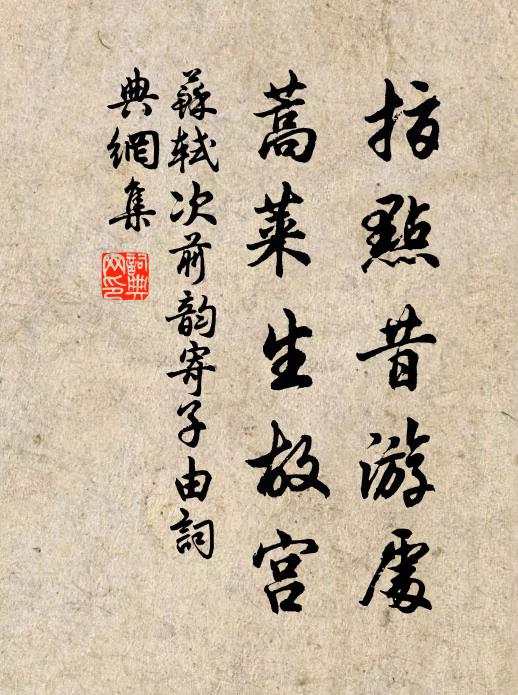 指點昔游處
蒿萊生故宮
蘇軾次前韵寄子由詞
典網集
詞典網印